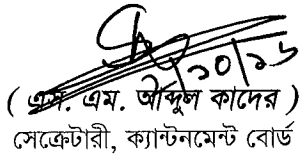 ২/১০/১৬
( এস. এম. আব্দুল কাদের )
সেক্রেটারী, ক্যান্টনমেন্ট বোর্ড